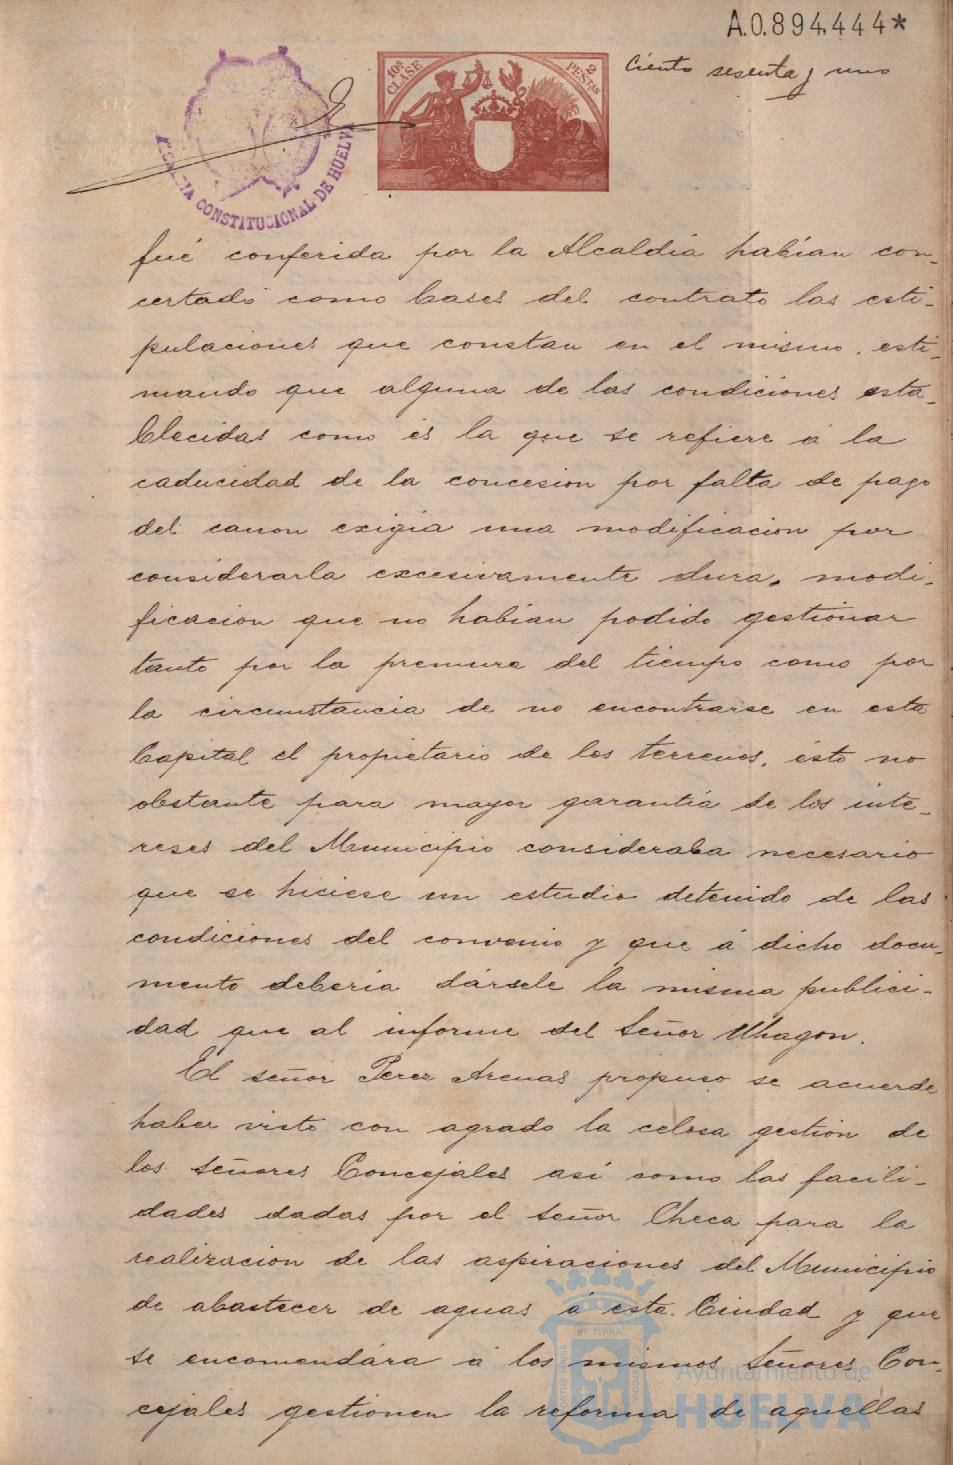 A.0.894.444*
Ciento sesenta y uno
10ª CLASE
2 PESTAS
CONSTITUCIONAL DE HUELVA
fué conferida por la Alcaldía habían con-
certado como bases del contrato las esti-
pulaciones que constan en el mismo, esti-
mando que alguna de las condiciones esta-
blecidas como es la que se refiere á la
caducidad de la concesion por falta de pago
del canon exigia una modificacion por
considerarla excesivamente dura, modi-
ficacion que no habian podido gestionar
tanto por la premura del tiempo como por
la circunstancia de no encontrarse en esta
Capital el propietario de los terrenos, ésto no
obstante para mayor garantía de los inte-
reses del Municipio consideraba necesario
que se hiciese un estudio detenido de las
condiciones del convenio y que á dicho docu-
mento debería dársele la misma publici-
dad que al informe del Señor Uhagon.
El señor Perez Arenas propuso se acuerde
haber visto con agrado la celosa gestion de
los señores Concejales así como las facili-
dades dadas por el señor Checa para la
realizacion de las aspiraciones del Municipio
de abastecer de aguas á esta Ciudad y que
se encomendára á los mismos Señores Con-
cejales gestionen la reforma de aquellas
Ayuntamiento de
HUELVA